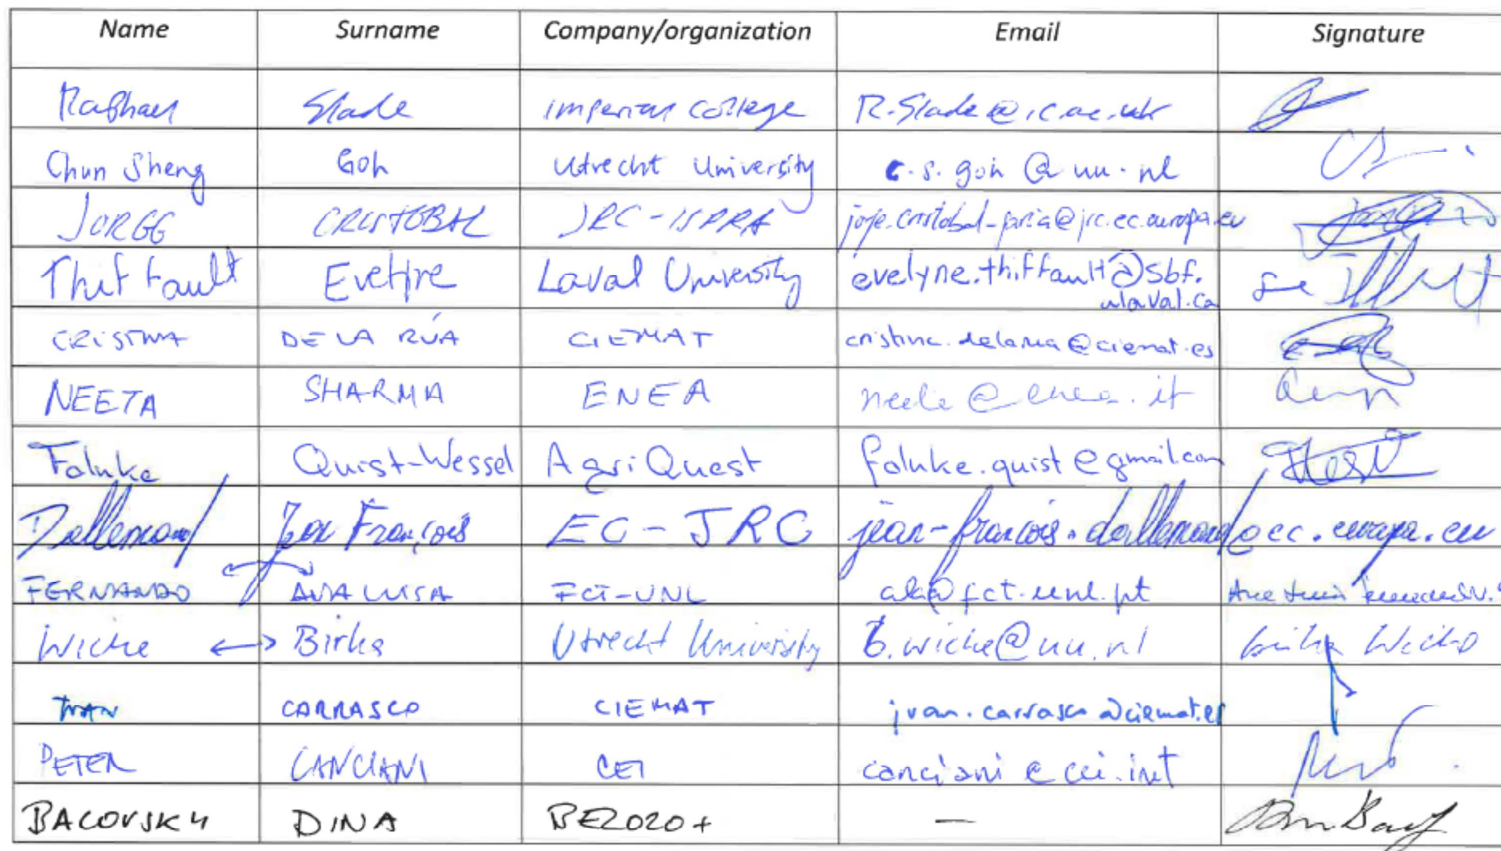 Name Surname Company/organization Email Signature
Raphael Slade Imperial College R.Slade@ic.ac.uk
Chun Sheng Goh Utrecht University c.s.goh@uu.nl
JORGE CRISTOBAL JRC-ISPRA
Thiffault Evelyne Laval University evelyne.thiffault@sbf.
ulaval.ca
CRISTINA DE LA RÚA CIEMAT cristina.delarua@ciemat.es
NEETA SHARMA ENEA neeta@enea.it
Foluke Quist-Wessel AgriQuest foluke.quist@gmail.com
Dallemand Jean François EC-JRC jean-francois.dallemand@ec.europa.eu
FERNANDO ANA LUISA FCT-UNL ala@fct.unl.pt
Wicke ↔ Birka Utrecht University B.wicke@uu.nl Birka Wicke
CARRASCO CIEMAT juan.carrasco@ciemat.es
PETER CANCIANI CEI canciani@cei.int
BACOVSKY DINA BE2020+ —